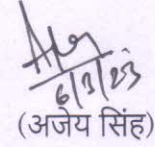 6/3/23
(अजेय सिंह)